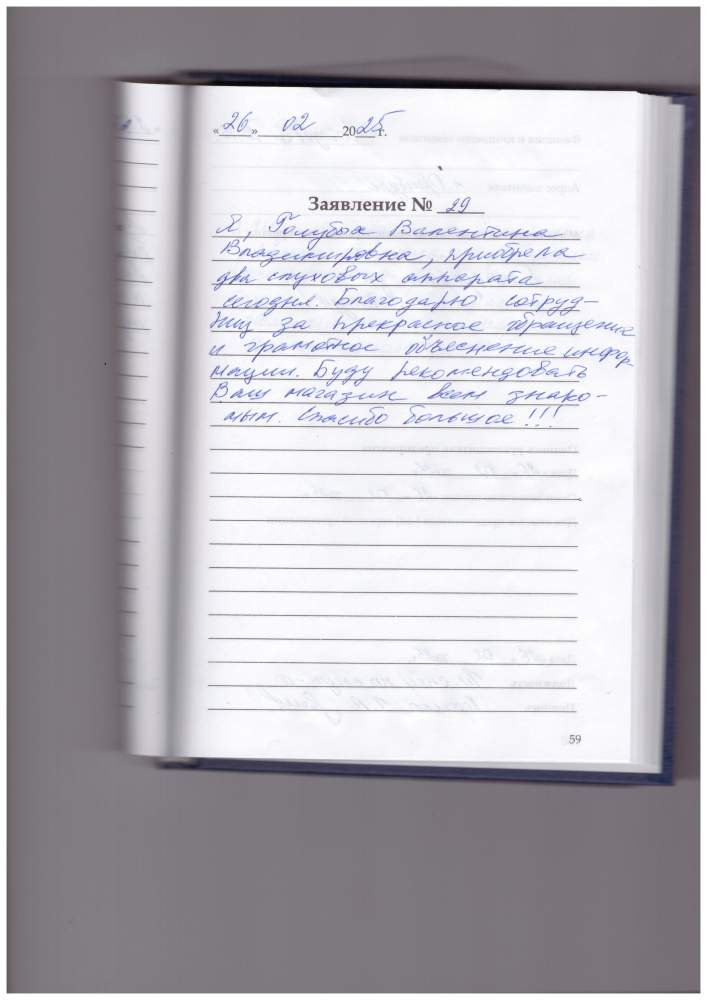 «26» 02 2025 г.
Заявление № 29
Я, Голубых Валентина
Владимировна, приобрела
два слуховых аппарата
сегодня. Благодарю сотруд-
ниц за прекрасное обращение
и грамотное объеснение инфор-
мации. Буду рекомендовать
Ваш магазин всем знако-
мым. Спасибо большое!!!
59